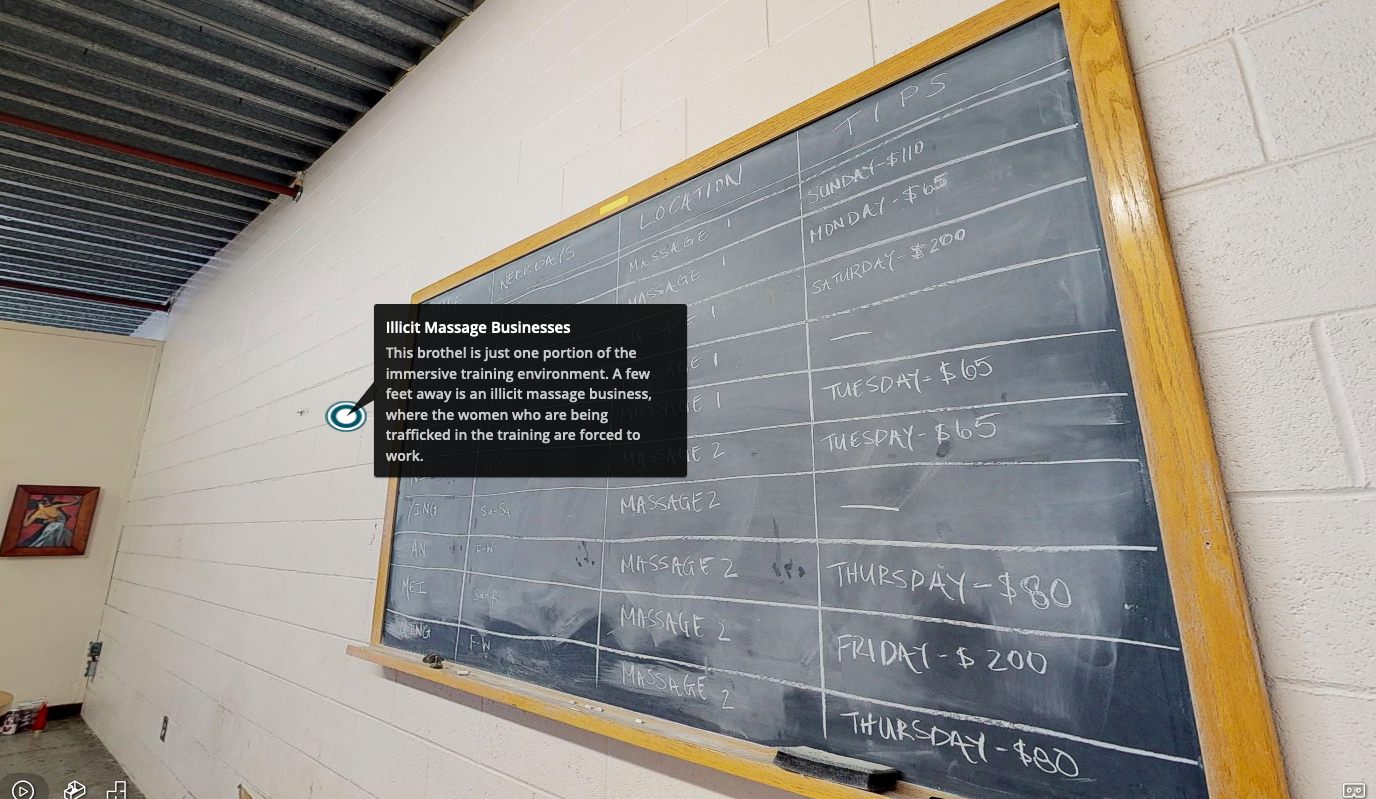 TIPS
LOCATION
WEEKDAYS
MASSAGE 1 SUNDAY-$110
MASSAGE 1 MONDAY-$65
1 SATURDAY-$200
1 —
1 TUESDAY-$65
2 TUESDAY-$65
YING Sa-Su MASSAGE 2 —
AN F-W MASSAGE 2 THURSDAY-$80
MEI MASSAGE 2 FRIDAY-$200
F-W MASSAGE 2 THURSDAY-$80
Illicit Massage Businesses
This brothel is just one portion of the
immersive training environment. A few
feet away is an illicit massage business,
where the women who are being
trafficked in the training are forced to
work.